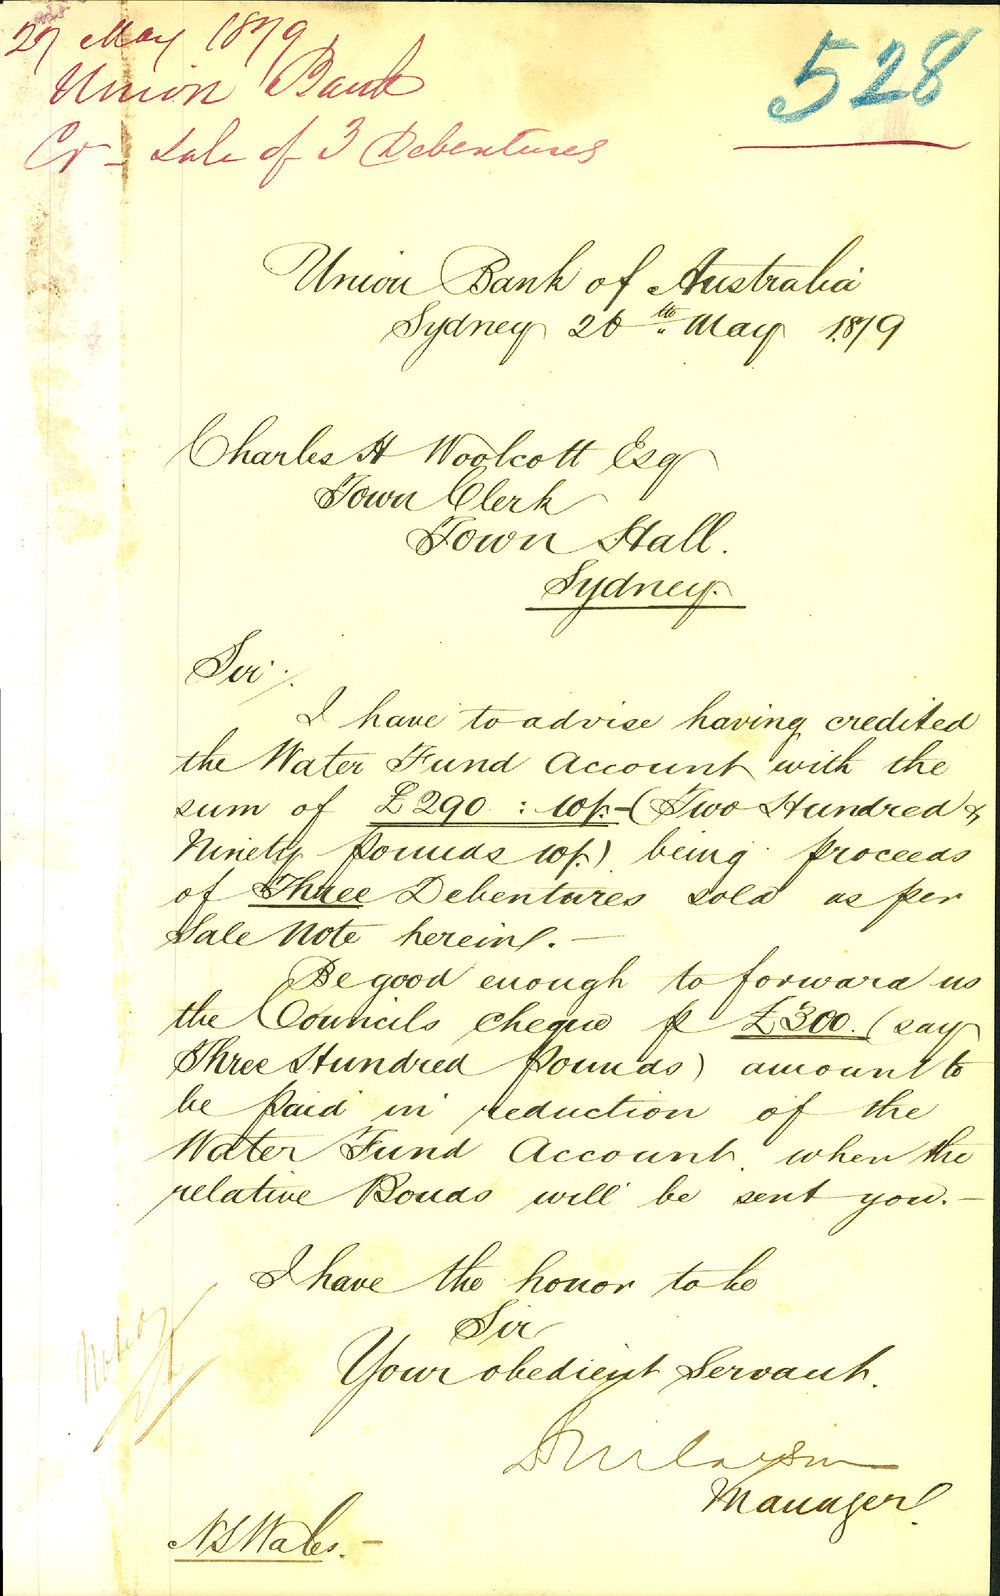 27 May 1879
528
Union Bank
Cr - Sale of 3 Debentures
Union Bank of Australia
Sydney 26th May 1879
Charles H Woolcott Esq
Town Clerk
Town Hall.
Sydney.
Sir
I have to advise having credited
the Water Fund Account with the
sum of £290 : 10/- (Two Hundred &
Ninety Pounds 10/-) being proceeds
of Three Debentures sold as per
Sale Note herein. -
Be good enough to forward us
the Councils cheque p £300. (say
Three Hundred Pounds) amount to
be paid in reduction of the
Water Fund Account. when the
relative Bonds will be sent you. -
I have the honor to be
Sir
Your obedient Servant.
Manager
Noted
NSWales. -